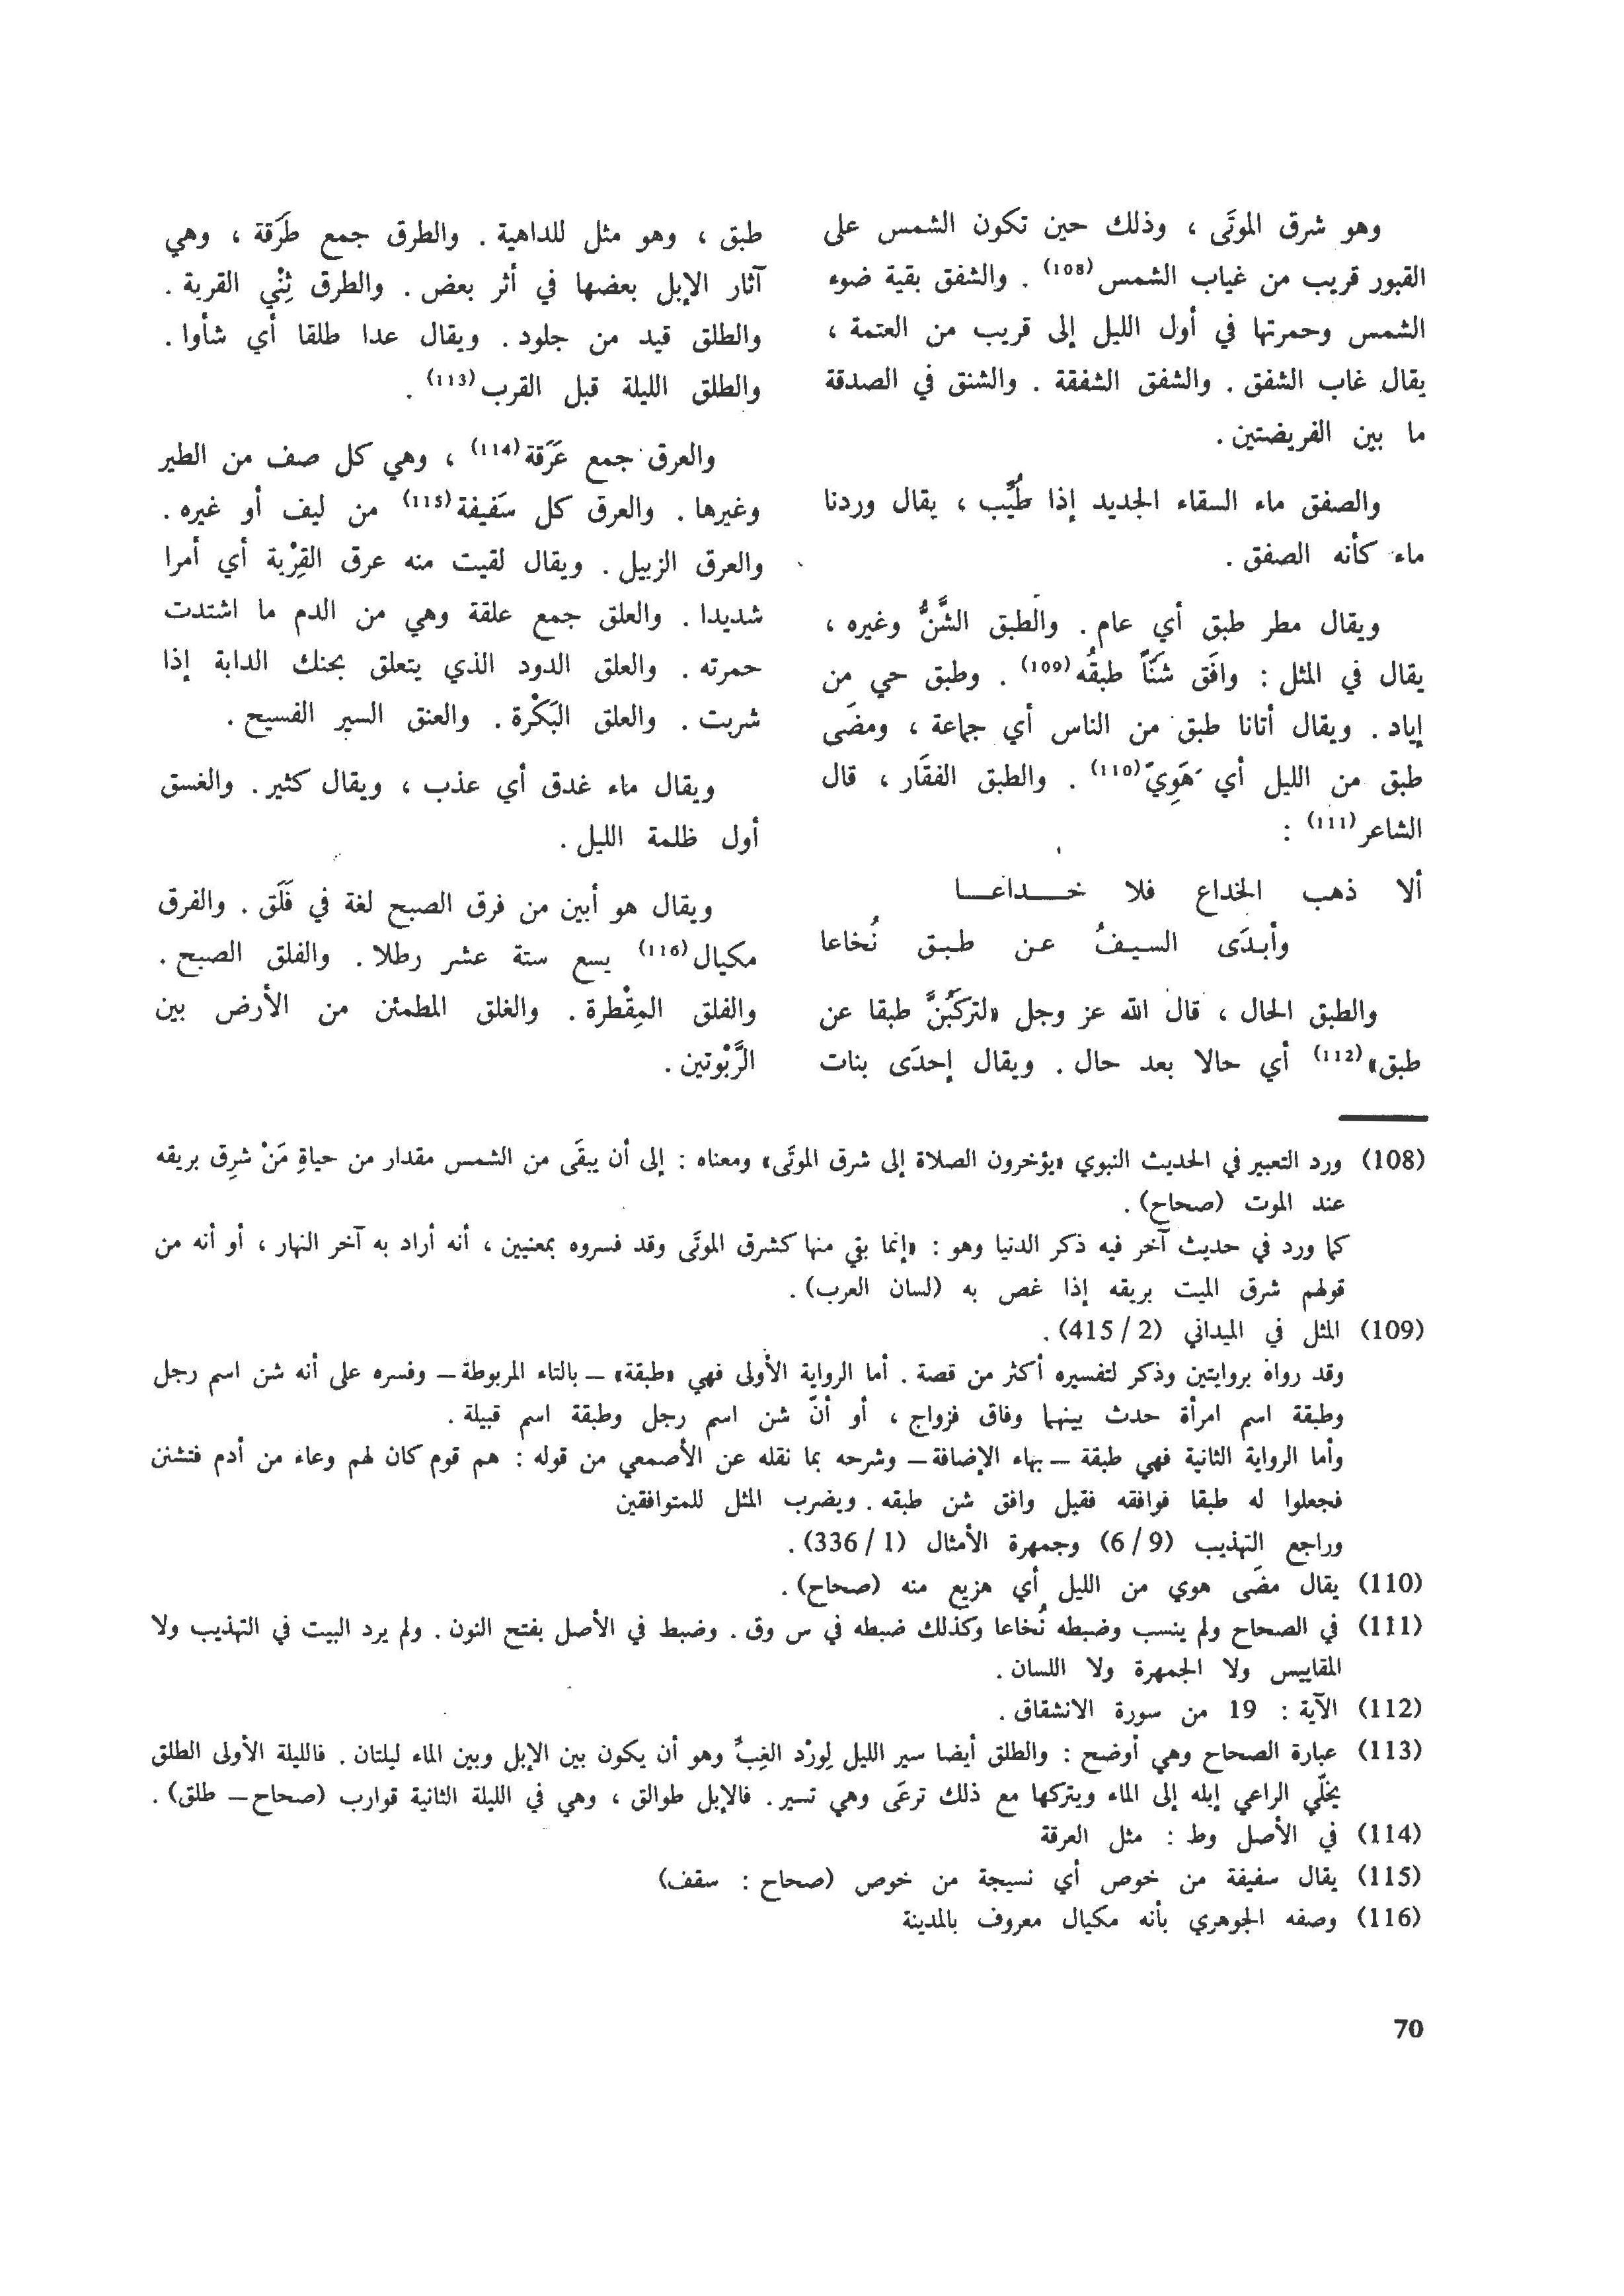 وهو شرق الموتَى ، وذلك حين تكون الشمس على
القبور قريب من غياب الشمس(108) . والشفق بقية ضوء
الشمس وحمرتها في أول الليل إلى قريب من العتمة ،
يقال غاب الشفق . والشفق الشفقة . والشنق في الصدقة
ما بين الفريضتين .
والصفق ماء السقاء الجديد إذا طُيِّب ، يقال وردنا
ماء كأنه الصفق .
ويقال مطر طبق أي عام . والطبق الشَّنُّ وغيره ،
يقال في المثل : وافَق شَنّاً طبقُه(109) . وطبق حي من
إياد . ويقال أتانا طبق من الناس أي جماعة ، ومضَى
طبق من الليل أي هَوِيّ(110) . والطبق الفقَار ، قال
الشاعر(111) :
ألا ذهب الخداع فلا خـــداعـــا
وأبـدَى السـيـفُ عـن طـبـق نُخاعا
والطبق الحال ، قال الله عز وجل «لتركبُنَّ طبقا عن
طبق»(112) أي حالا بعد حال . ويقال إحدَى بنات
طبق ، وهو مثل للداهية . والطرق جمع طَرَقة ، وهي
آثار الإبل بعضها في أثر بعض . والطرق ثِنْي القربة .
والطلق قيد من جلود . ويقال عدا طلقا أي شأوا .
والطلق الليلة قبل القرب(113) .
والعرق جمع عَرَقة(114) ، وهي كل صف من الطير
وغيرها . والعرق كل سَفيفة(115) من ليف أو غيره .
والعرق الزبيل . ويقال لقيت منه عرق القِرْبة أي أمرا
شديدا . والعلق جمع علقة وهي من الدم ما اشتدت
حمرته . والعلق الدود الذي يتعلق بحنك الدابة إذا
شربت . والعلق البَكْرة . والعنق السير الفسيح .
ويقال ماء غدق أي عذب ، ويقال كثير . والغسق
أول ظلمة الليل .
ويقال هو أبين من فرق الصبح لغة في فَلَق . والفرق
مكيال(116) يسع ستة عشر رطلا . والفلق الصبح .
والفلق المِقْطرة . والغلق المطمئن من الأرض بين
الرَّبْوتين .
(108) ورد التعبير في الحديث النبوي «يؤخرون الصلاة إلى شرق الموتَى» ومعناه : إلى أن يبقَى من الشمس مقدار من حياةِ مَنْ شرِق بريقه
عند الموت (صحاح) .
كما ورد في حديث آخر فيه ذكر الدنيا وهو : «إنما بقي منها كشرق الموتَى وقد فسروه بمعنيين ، أنه أراد به آخر النهار ، أو أنه من
قولهم شرق الميت بريقه إذا غص به (لسان العرب) .
(109) المثل في الميداني (2 / 415) .
وقد رواه بروايتين وذكر لتفسيره أكثر من قصة . أما الرواية الأولى فهي «طبقة» – بالتاء المربوطة – وفسره على أنه شن اسم رجل
وطبقة اسم امرأة حدث بينهما وفاق فزواج ، أو أنّ شن اسم رجل وطبقة اسم قبيلة .
وأما الرواية الثانية فهي طبقة – بهاء الإضافة – وشرحه بما نقله عن الأصمعي من قوله : هم قوم كان لهم وعاء من أدم فتشنن
فجعلوا له طبقا فوافقه فقيل وافق شن طبقه . ويضرب المثل للمتوافقين
وراجع التهذيب (9 / 6) وجمهرة الأمثال (1 / 336) .
(110) يقال مضَى هوي من الليل أي هزيع منه (صحاح) .
(111) في الصحاح ولم ينسب وضبطه نُخاعا وكذلك ضبطه في س وق . وضبط في الأصل بفتح النون . ولم يرد البيت في التهذيب ولا
المقاييس ولا الجمهرة ولا اللسان .
(112) الآية : 19 من سورة الانشقاق .
(113) عبارة الصحاح وهي أوضح : والطلق أيضا سير الليل لِورْد الغِبِّ وهو أن يكون بين الإبل وبين الماء ليلتان . فالليلة الأولى الطلق
يخلّي الراعي إبله إلى الماء ويتركها مع ذلك ترعَى وهي تسير . فالإبل طوالق ، وهي في الليلة الثانية قوارب (صحاح – طلق) .
(114) في الأصل وط : مثل العرقة
(115) يقال سفيفة من خوص أي نسيجة من خوص (صحاح : سقف)
(116) وصفه الجوهري بأنه مكيال معروف بالمدينة
70